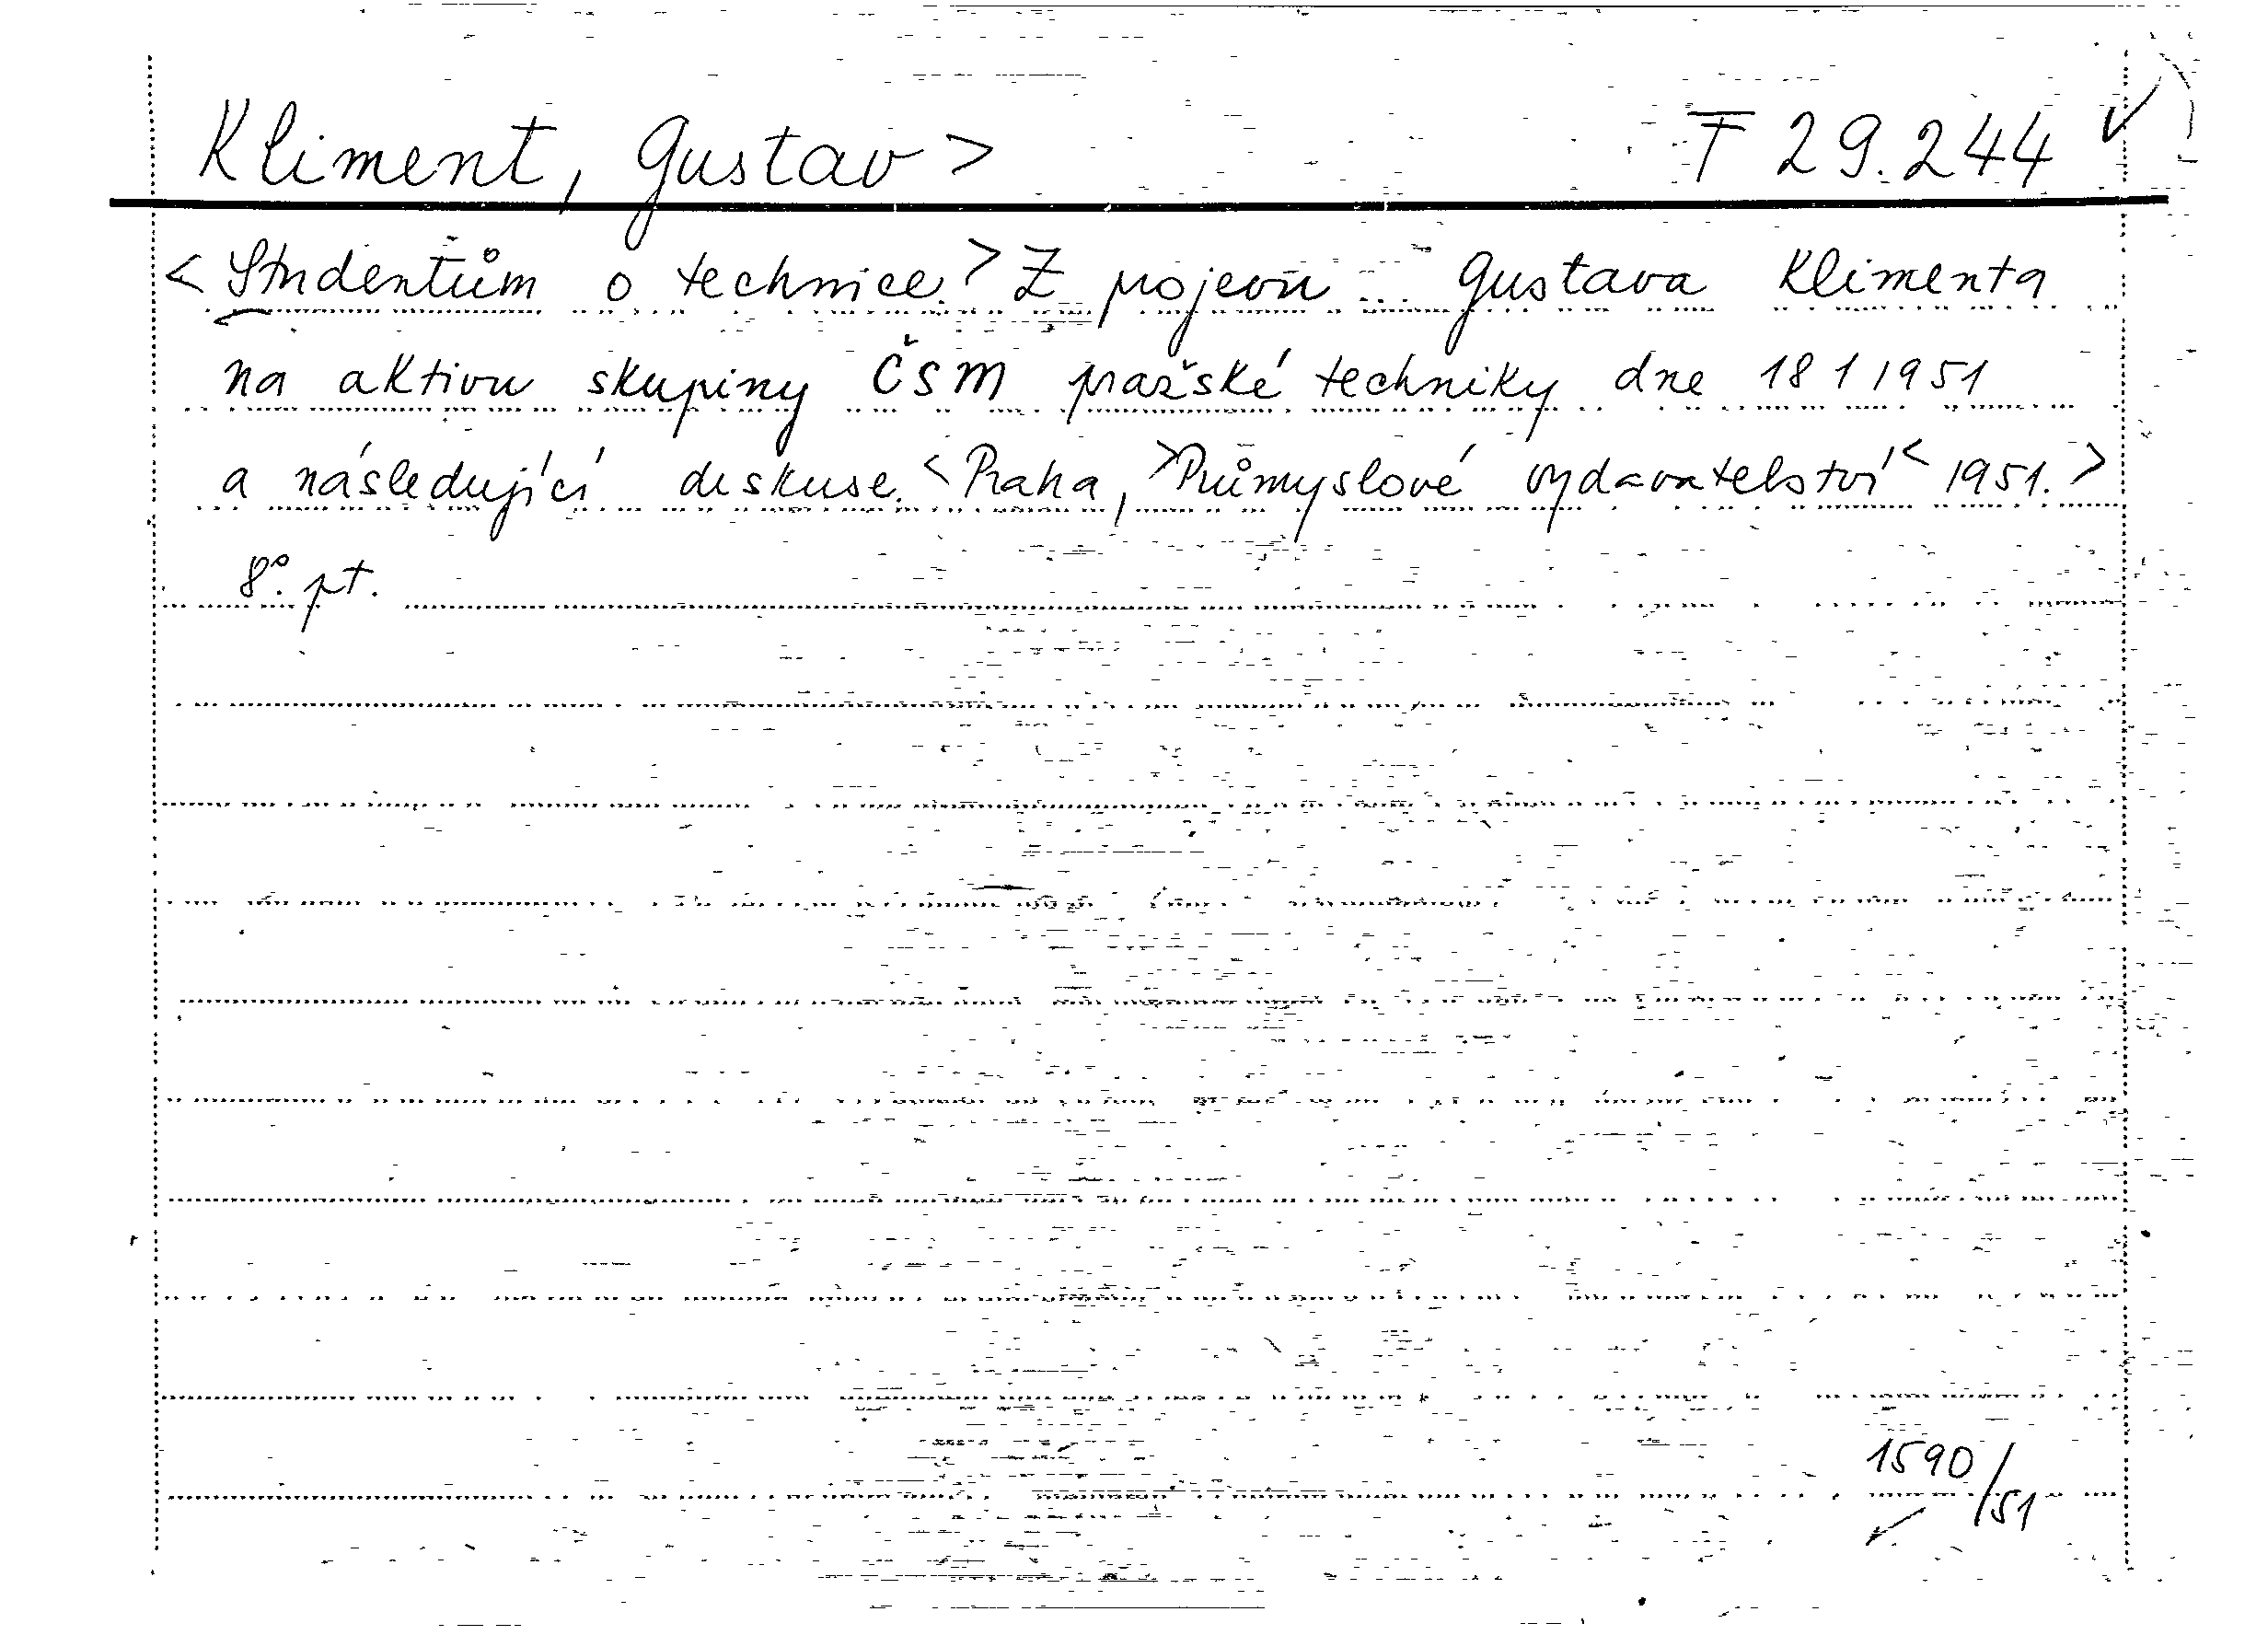 Kliment, Gustav > F 29.244 ✓
< Studentům o technice. > Z projevu ... Gustava Klimenta
na aktivu skupiny ČSM pražské techniky dne 18 1 1951
a následující diskuse. < Praha, > Průmyslové vydavatelství < 1951. >
8°. pt.
1590/51